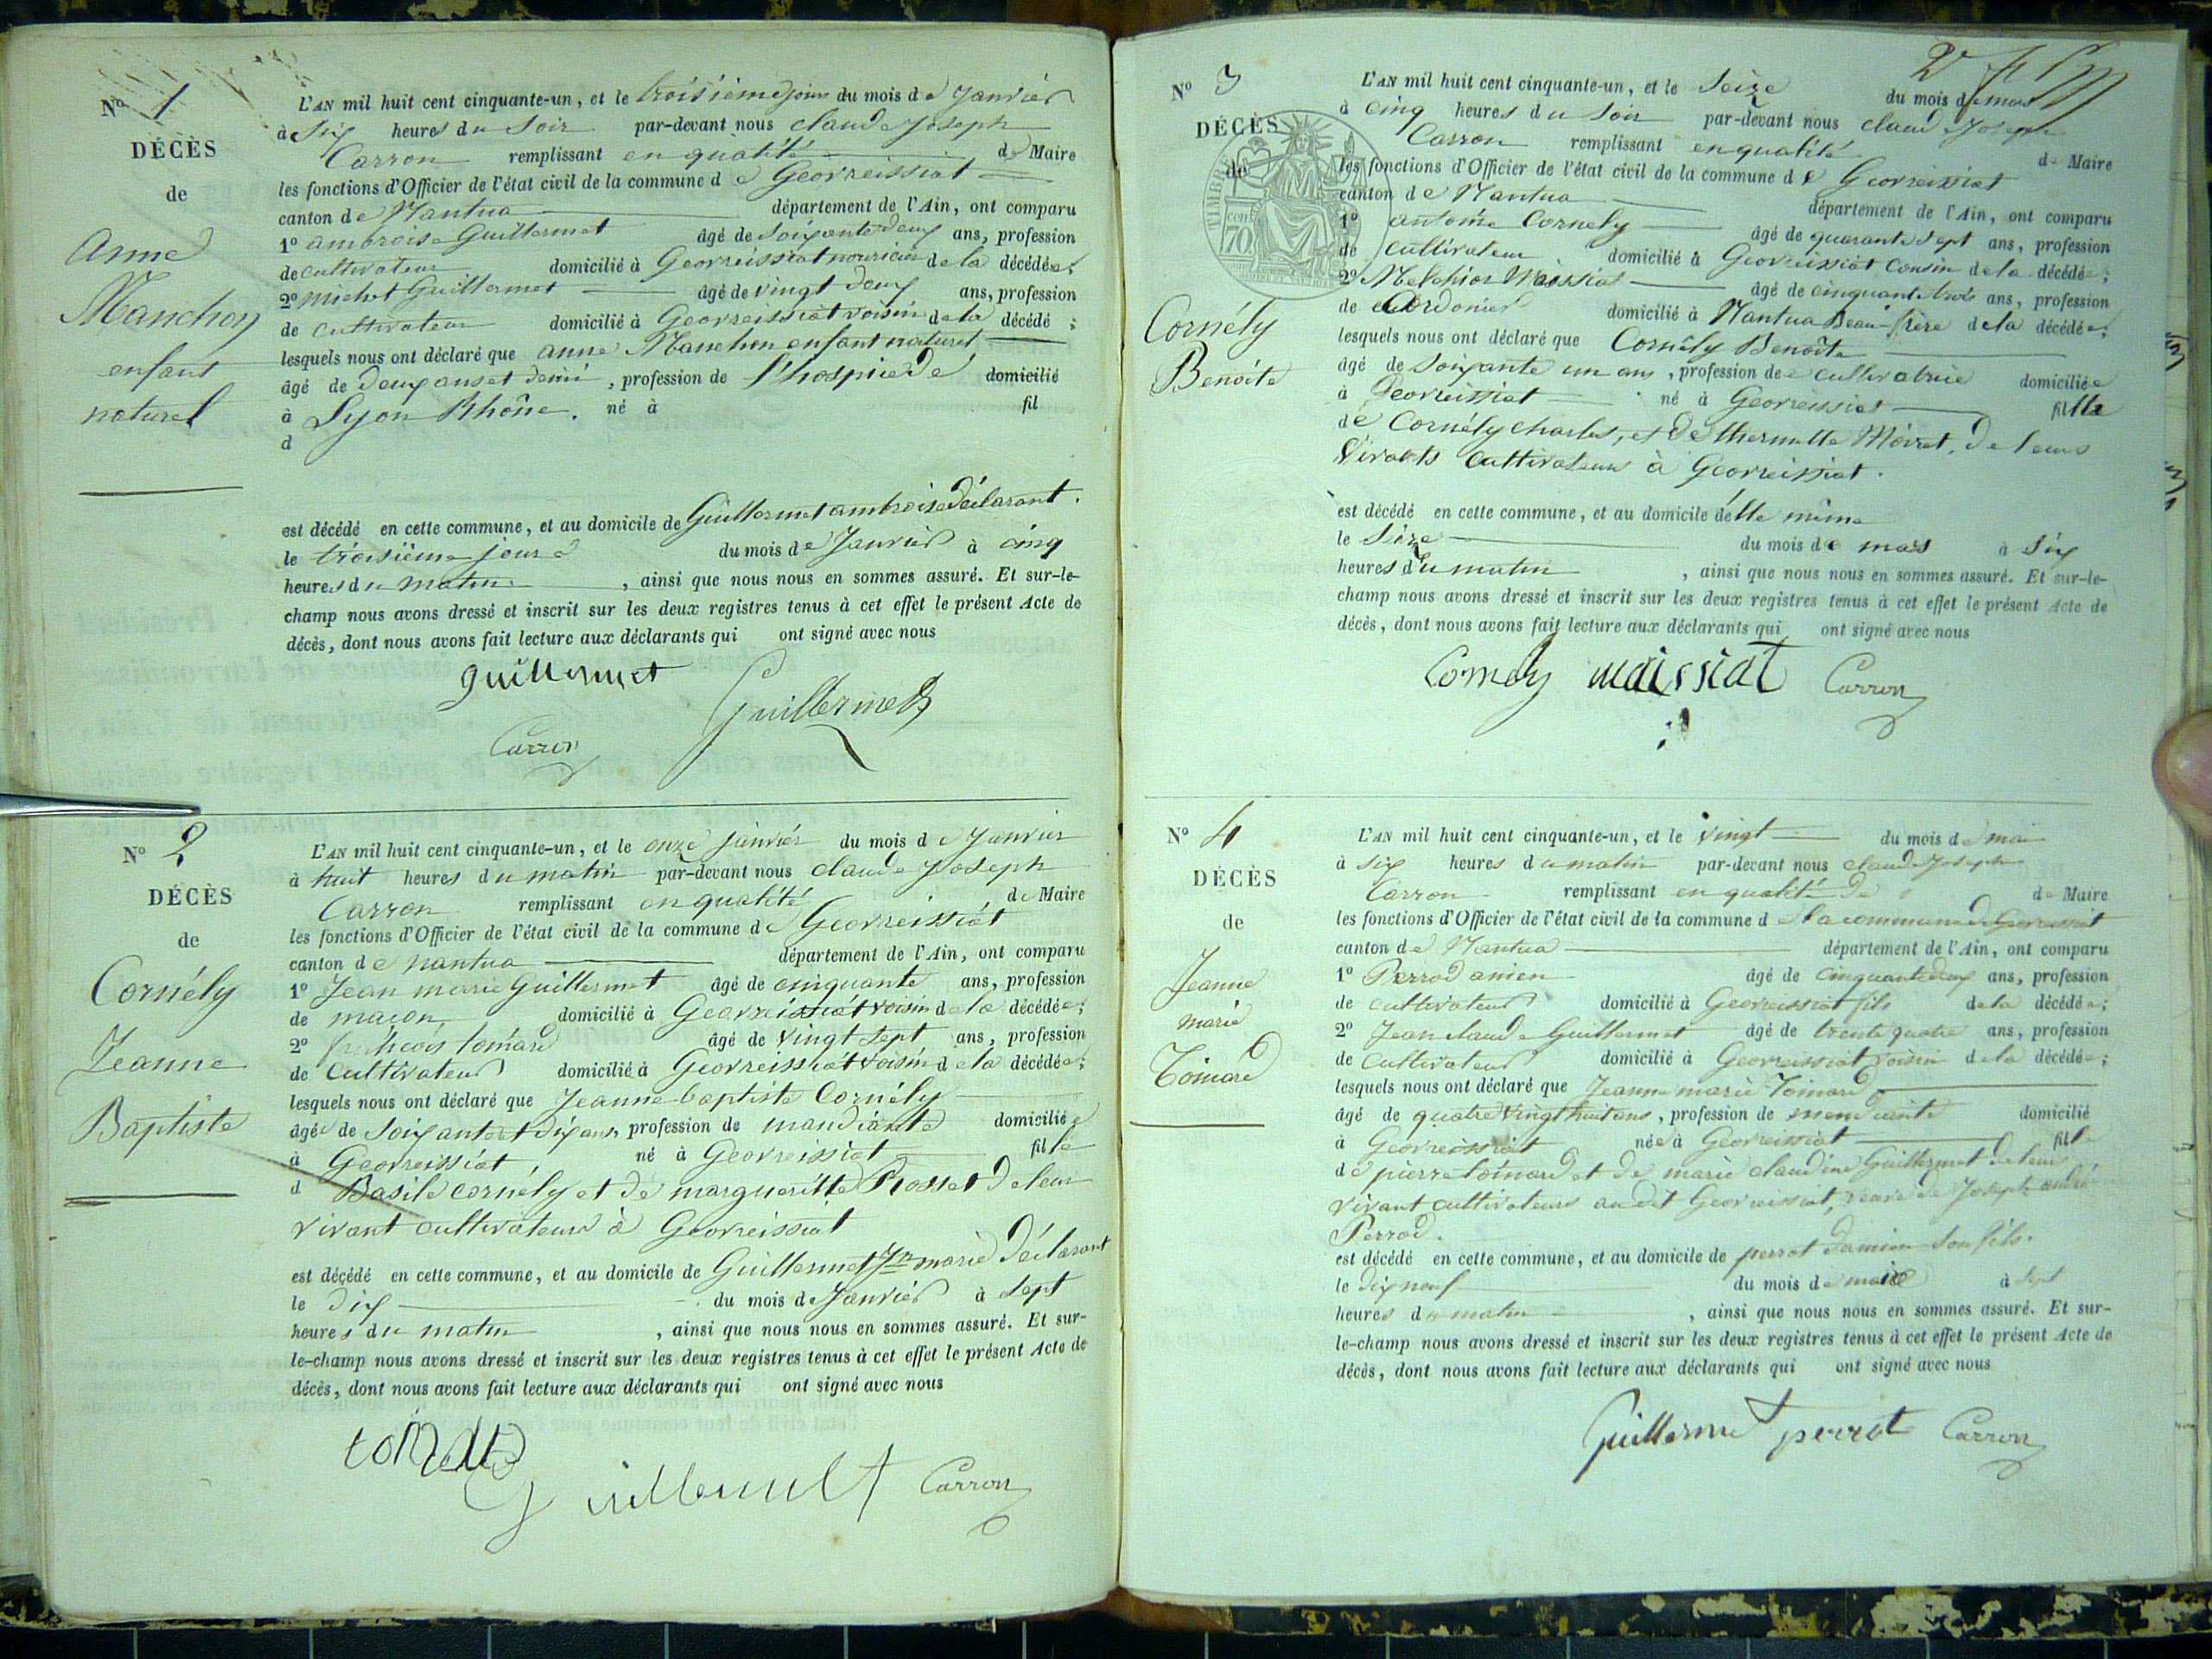 Nº 1
DÉCÈS
de
Anne
Manchon
enfant
naturel
L'AN mil huit cent cinquante-un, et le troisième jour du mois de Janvier
à Six heures du Soir par-devant nous Claude Joseph
Carron remplissant en qualité de Maire
les fonctions d'Officier de l'état civil de la commune de Georreissiat
canton de Nantua département de l'Ain, ont comparu
1º ambroise Guillermet âgé de Soixante deux ans, profession
de cultivateur domicilié à Georreissiat nouricier de la décédée;
2º michel Guillermet âgé de vingt deux ans, profession
de cultivateur domicilié à Georreissiat voisin de la décédé ;
lesquels nous ont déclaré que anne Manchon enfant naturel
âgé de deux ans et demi, profession de l'hospice de domicilié
à Lyon Rhône. né à fil
d
est décédé en cette commune, et au domicile de Guillermet ambroise déclarant.
le troisième jour du mois de Janvier à cinq
heures du matin, ainsi que nous nous en sommes assuré. Et sur-le-
champ nous avons dressé et inscrit sur les deux registres tenus à cet effet le présent Acte de
décès, dont nous avons fait lecture aux déclarants qui ont signé avec nous
guillermet
Guillermet
Carron
Nº 2
DÉCÈS
de
Cornély
Jeanne
Baptiste
L'AN mil huit cent cinquante-un, et le onze janvier du mois de Janvier
à huit heures du matin par-devant nous Claude Joseph
Carron remplissant en qualité de Maire
les fonctions d'Officier de l'état civil de la commune de Georreissiat
canton de nantua département de l'Ain, ont comparu
1º Jean marie Guillermet âgé de cinquante ans, profession
de maçon domicilié à Georreissiat voisin de la décédée;
2º françois tomard âgé de vingt sept ans, profession
de Cultivateur domicilié à Georreissiat voisin de la décédée;
lesquels nous ont déclaré que Jeanne baptiste Cornély
âgée de Soixante et dix ans, profession de mandiante domiciliée
à Georreissiat né à Georreissiat fille
d Basile cornély et de margueritte Rosset de leur
vivant cultivateurs à Georreissiat
est décédé en cette commune, et au domicile de Guillermet Jn marie déclarant
le dix du mois de Janvier à Sept
heures du matin, ainsi que nous nous en sommes assuré. Et sur-
le-champ nous avons dressé et inscrit sur les deux registres tenus à cet effet le présent Acte de
décès, dont nous avons fait lecture aux déclarants qui ont signé avec nous
Guillermet Carron
Nº 3
DÉCÈS
de
TIMBRE
70
Cornély
Benoite
L'AN mil huit cent cinquante-un, et le Seize du mois de mars
à cinq heures du Soir par-devant nous Claude Joseph
Carron remplissant en qualité de Maire
les fonctions d'Officier de l'état civil de la commune de Georreissiat
canton de Nantua département de l'Ain, ont comparu
1º antoine Cornely âgé de quarante Sept ans, profession
de cultivateur domicilié à Georreissiat Cousin de la décédée;
2º Melchior Maissiat âgé de cinquante trois ans, profession
de Cordonier domicilié à Nantua Beau frère de la décédée;
lesquels nous ont déclaré que Cornély Benoite
âgé de Soixante un ans, profession de cultivatrice domiciliée
à Georreissiat né à Georreissiat fille
de Cornély Charles, et de thermette Moiret, de leurs
Vivants Cultivateurs à Georreissiat.
est décédé en cette commune, et au domicile d'elle même
le Seize du mois de mars à Six
heures du matin, ainsi que nous nous en sommes assuré. Et sur-le-
champ nous avons dressé et inscrit sur les deux registres tenus à cet effet le présent Acte de
décès, dont nous avons fait lecture aux déclarants qui ont signé avec nous
Cornely maissiat Carron
Nº 4
DÉCÈS
de
Jeanne
marie
Tomard
L'AN mil huit cent cinquante-un, et le vingt du mois de mai
à six heures du matin par-devant nous Claude Joseph
Carron remplissant en qualité de de Maire
les fonctions d'Officier de l'état civil de la commune d la commune de Georreissiat
canton de Nantua département de l'Ain, ont comparu
1º Perrod amien âgé de cinquante deux ans, profession
de cultivateur domicilié à Georreissiat fils de la décédée;
2º Jean claude Guillermet âgé de trente quatre ans, profession
de Cultivateur domicilié à Georreissiat voisin de la décédée;
lesquels nous ont déclaré que Jeanne marie Tomard
âgé de quatre vingt huit ans, profession de mendiante domicilié
à Georreissiat née à Georreissiat fille
de pierre tomard et de marie claudine Guillermet de leur
vivant cultivateurs au dit Georreissiat, veuve de Joseph andré
Perrod.
est décédé en cette commune, et au domicile de perrot Damien Son fils.
le dix neuf du mois de mai à Sept
heures du matin, ainsi que nous nous en sommes assuré. Et sur-
le-champ nous avons dressé et inscrit sur les deux registres tenus à cet effet le présent Acte de
décès, dont nous avons fait lecture aux déclarants qui ont signé avec nous
Guillermet perrot Carron